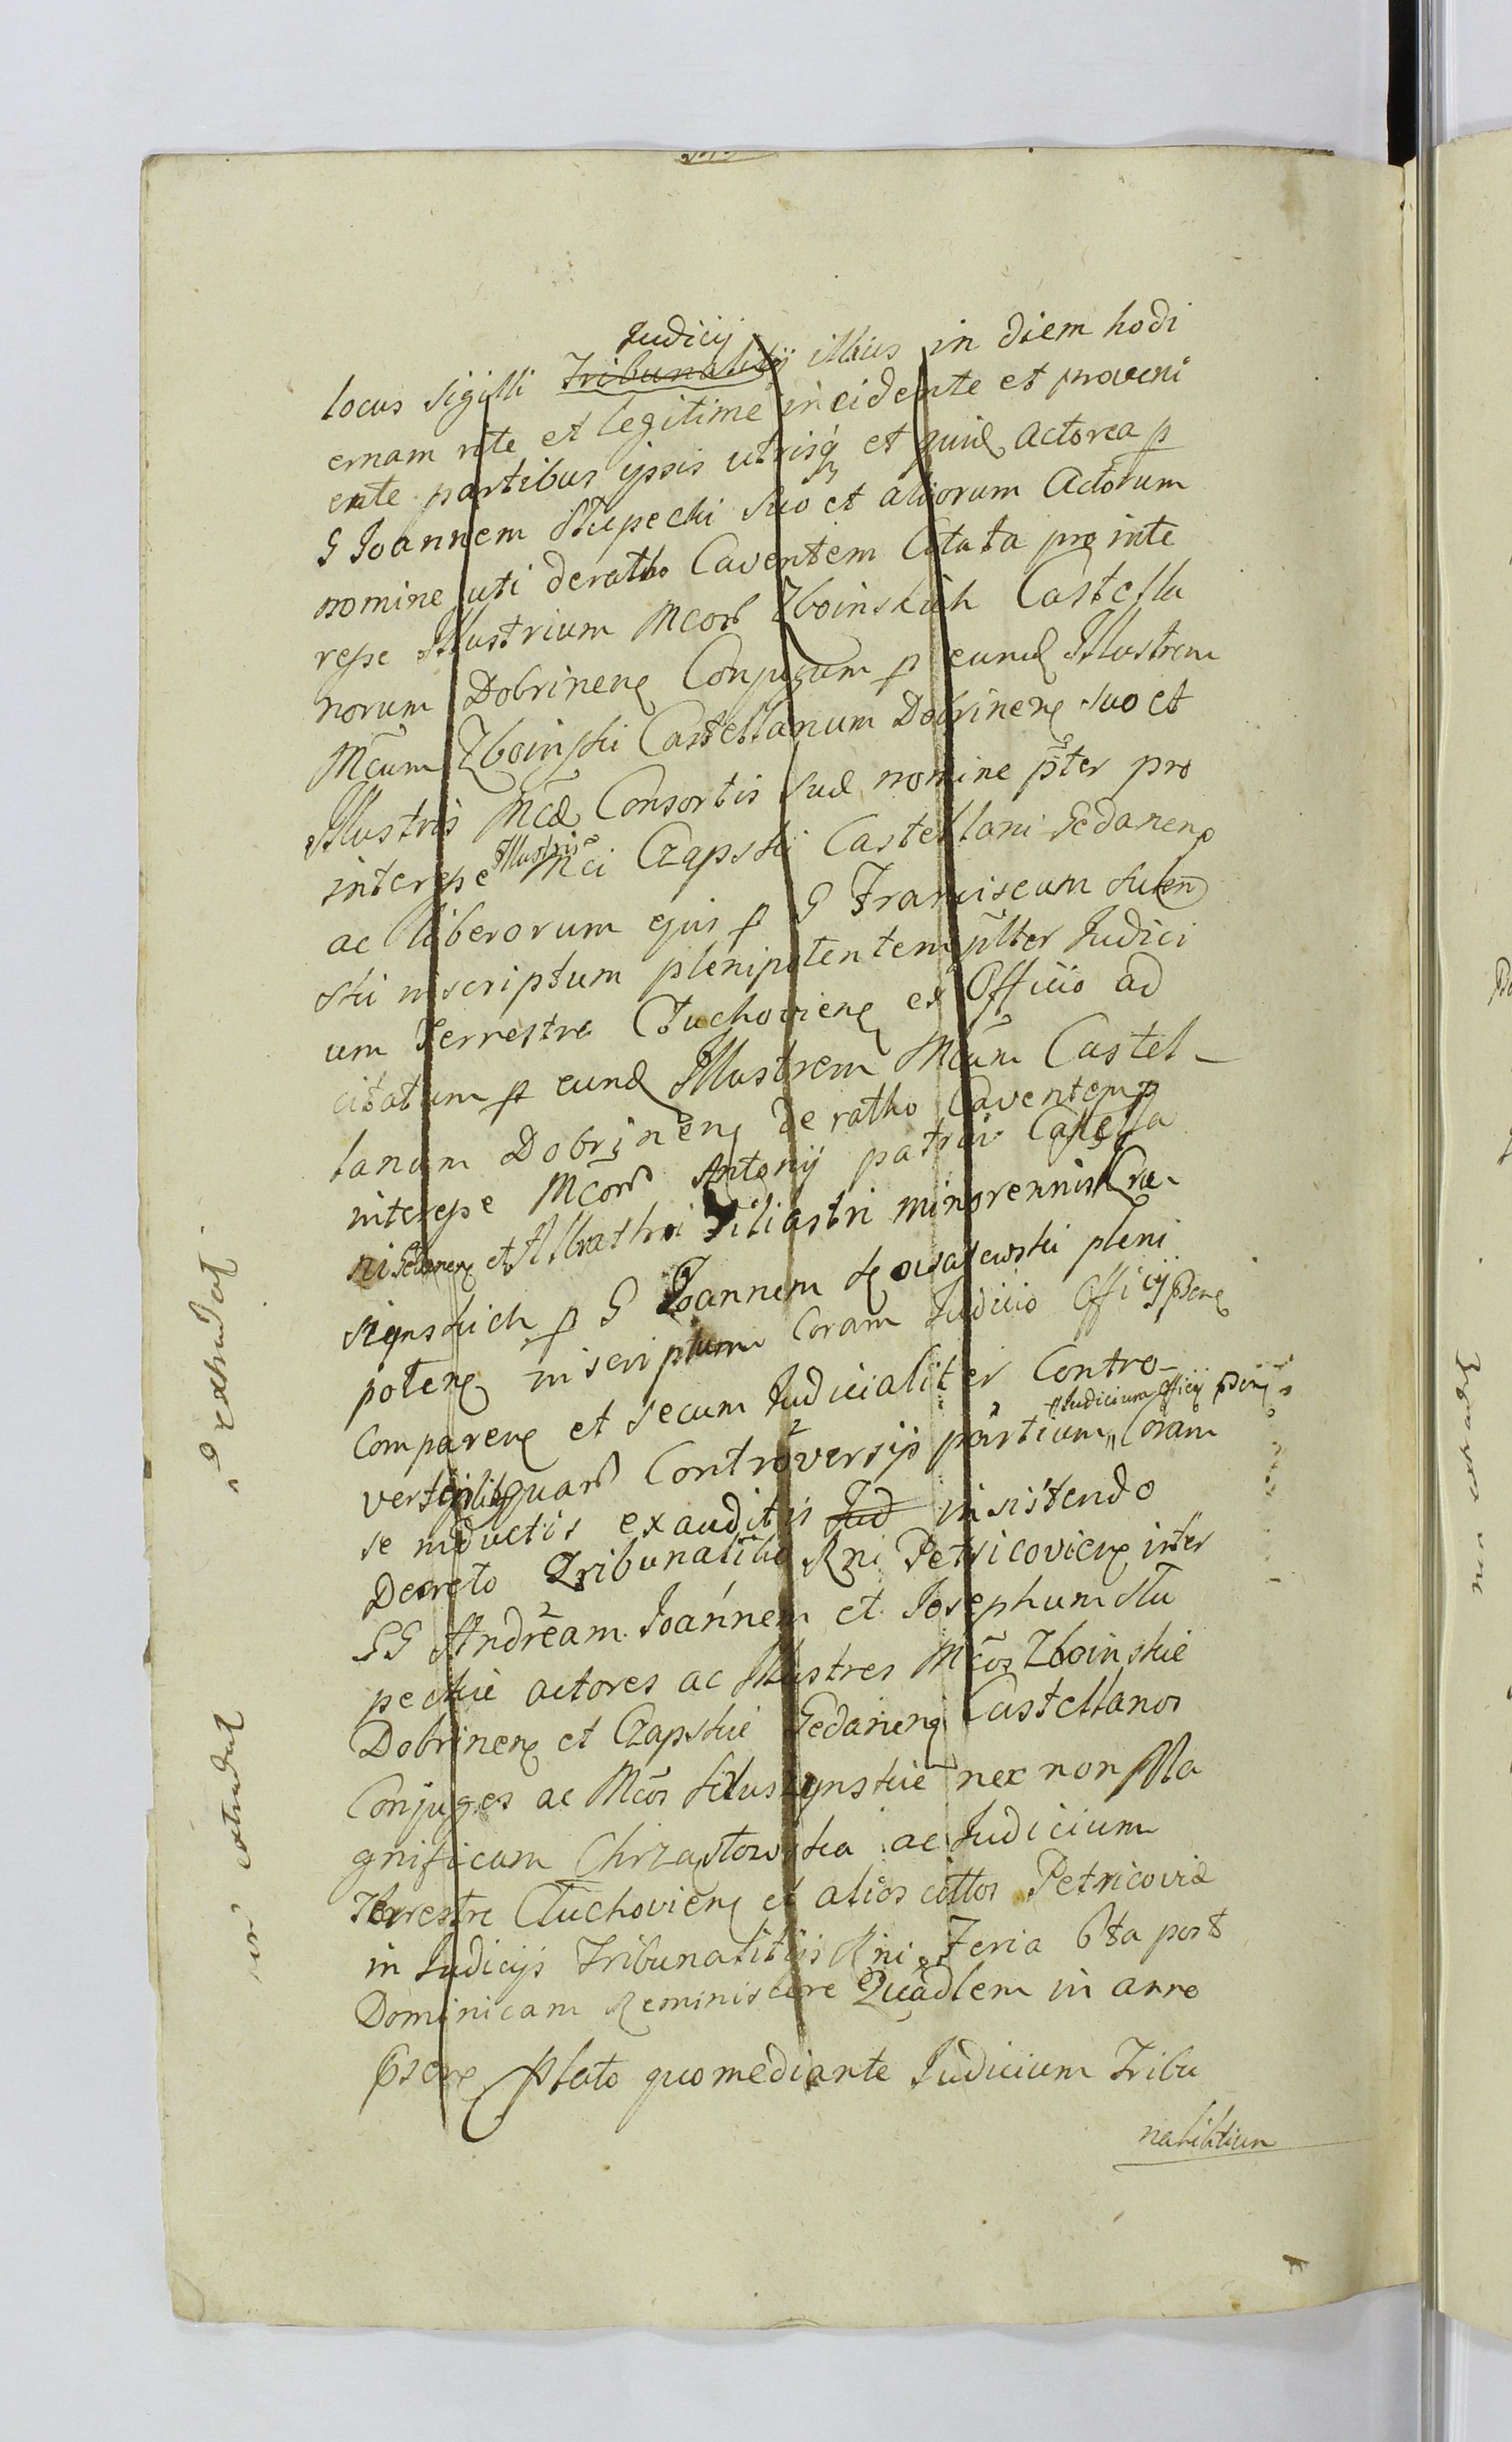 Judicij
locus sigilli Tribunalitij illius in diem hodi
ernam rite et legitime incidente et proveni
ente partibus ipsis utrisq et quid actorea p
G Joannem Słupecki suo et aliorum Actorum
nomine uti deratho Caventem Citata pro inte
resse Illustrium Mcor Zboinskich Castella
norum Dobrinen Conjugum p eund Illustrem
Mcum Zboinski Castellanum Dobrinen suo et
Illustris Mcæ Consortis suæ nomine pter pro
interesse Illustris Mci Czapski Castellani Gedanen
ac liberorum ejus p G Franciscum
ski inscriptum plenipotentem Judici
um Terrestre Tuchovien ex Officio ad
citatum p eund Illustrem Mcum Castel-
lanum Dobrinen de ratho Caventem p
interesse Mcor Antonij patrui Castella
ni Gedanen et filiastri minorennis Kru-
szynskich p G Joannem Kowalewski pleni
poten inscriptum Coram Judicio Officij psen
Comparen et secum Judicialiter Contro-
Judicium Officij psens
quar Controversijs partium Coram
se inductis exauditis Jud insistendo
Decreto Tribunalitio Rni Petricovien inter
GG Andream Joannem et Josephum Słu
peckie actores ac Illustres Mcos Zboinskie
Dobrinen et Czapskie Gedanen Castellanos
Conjuges ac Mcos Kruszynskie nec non Ma
gnificam Chrząstowska ac Judicium
Terrestre Tuchovien et alios cittos Petricoviæ
in Judicijs Tribunalitijs Rni Feria 6ta post
Dominicam Reminiscere Quadlem in anno
psen lato quo mediante Judicium Tribu
nalitium